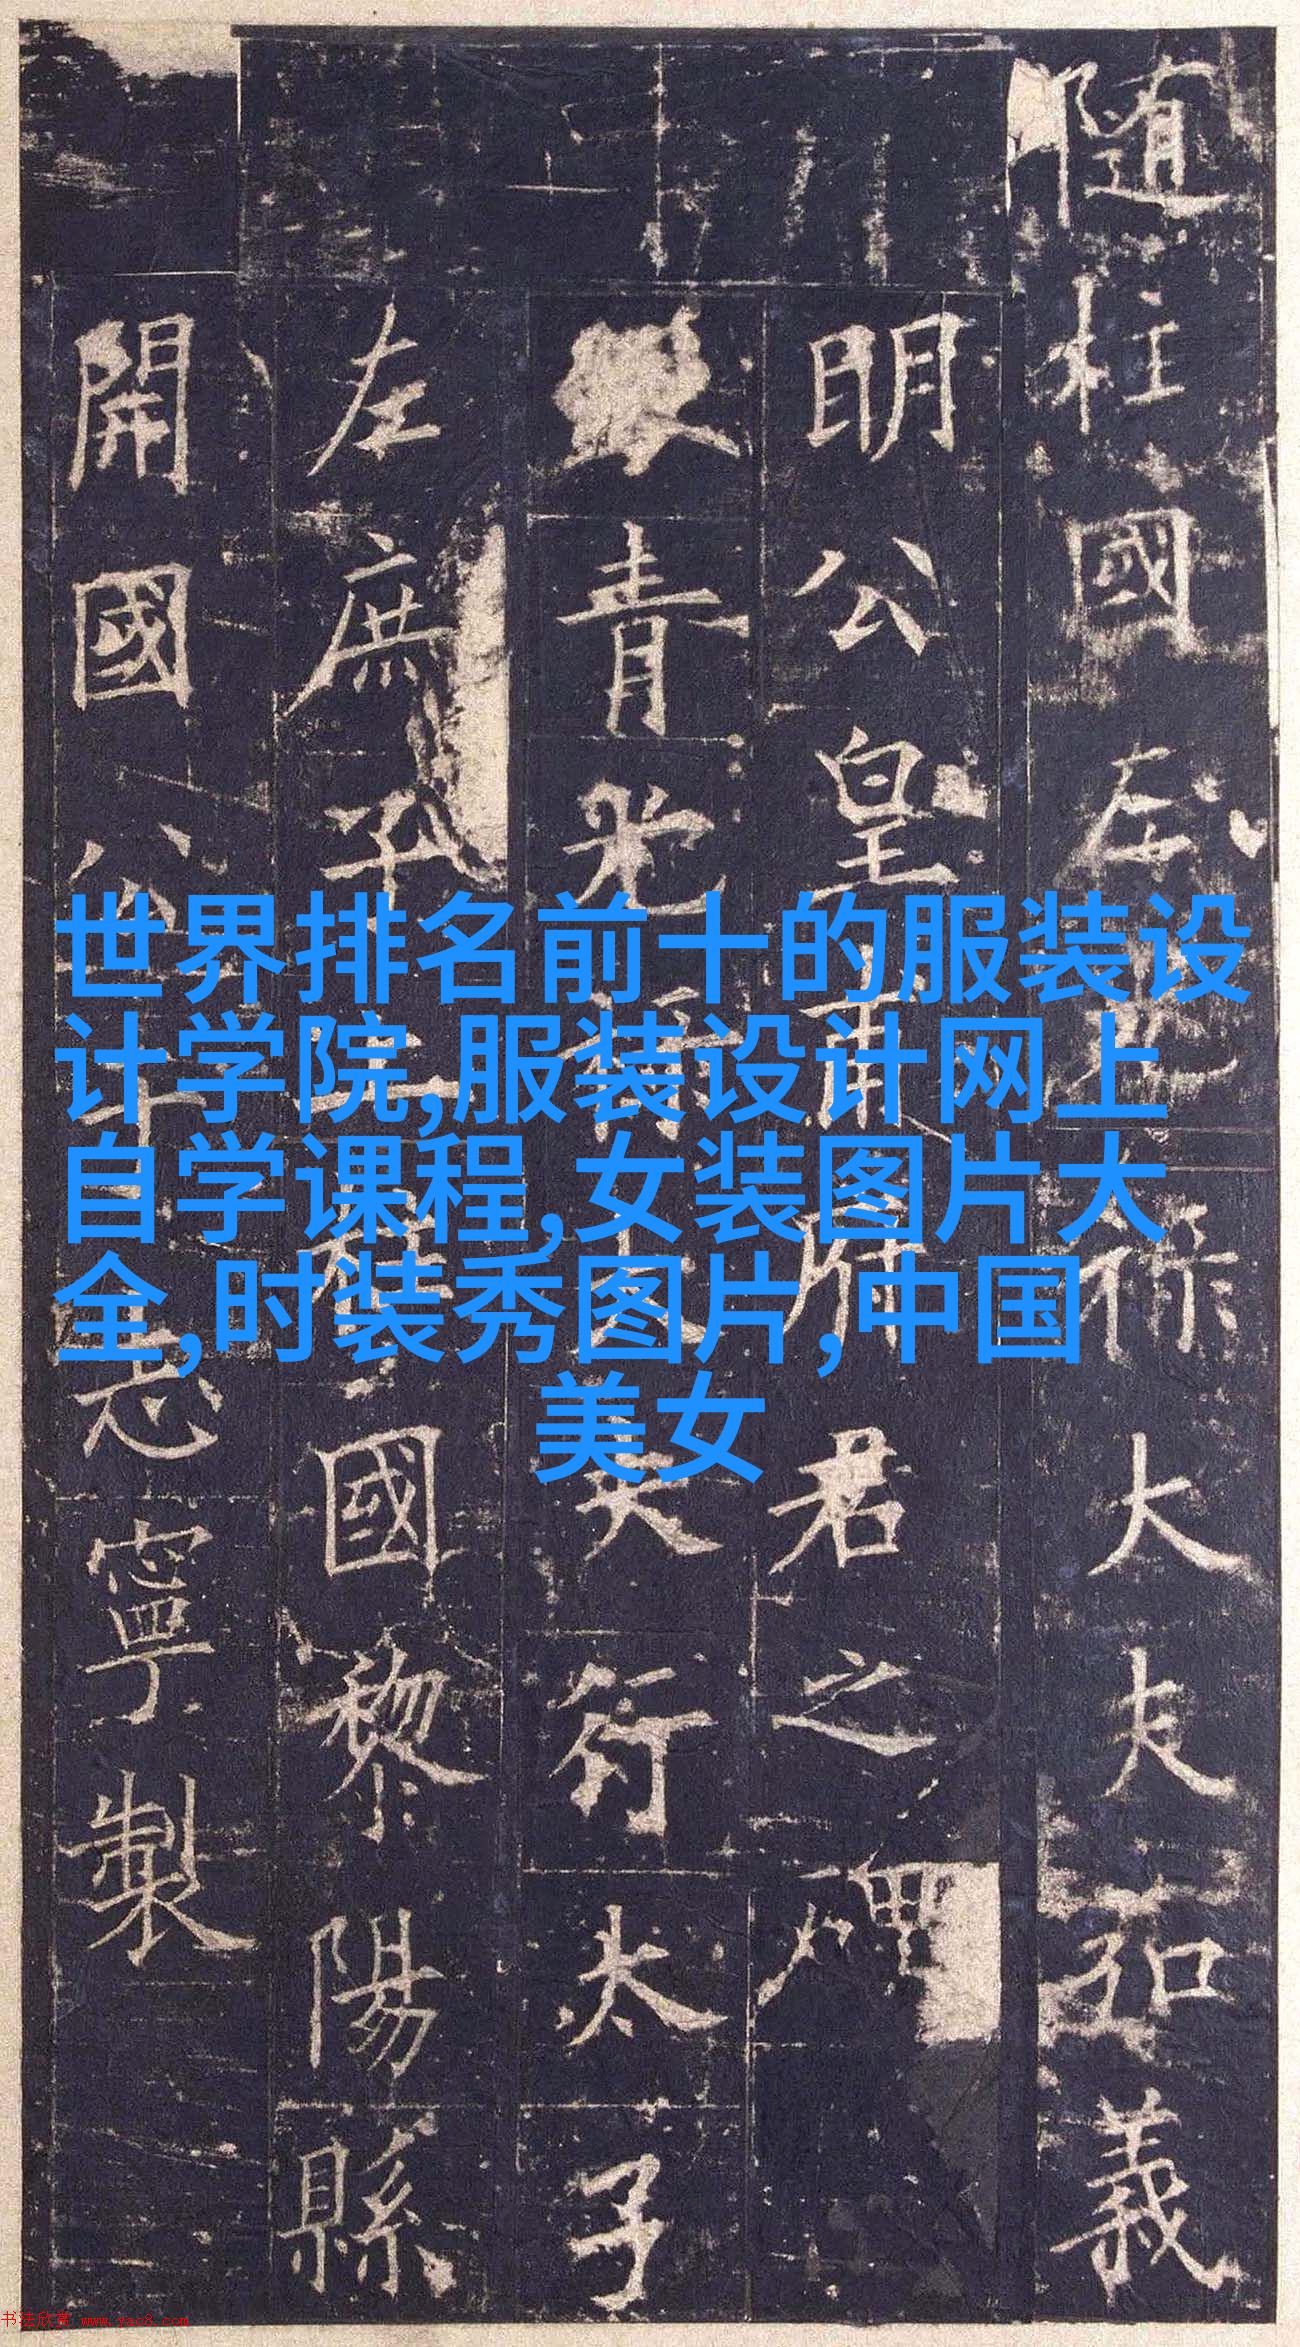 隨柱國左光祿大夫弘義
明公皇甫府君之碑
青光祿大夫行太子
左庶子上柱國黎陽縣
開國公于志寧製
世界排名前十的服装设
计学院,服装设计网上
自学课程,女装图片大
全,时装秀图片,中国
美女
书法欣赏 www.yac8.com